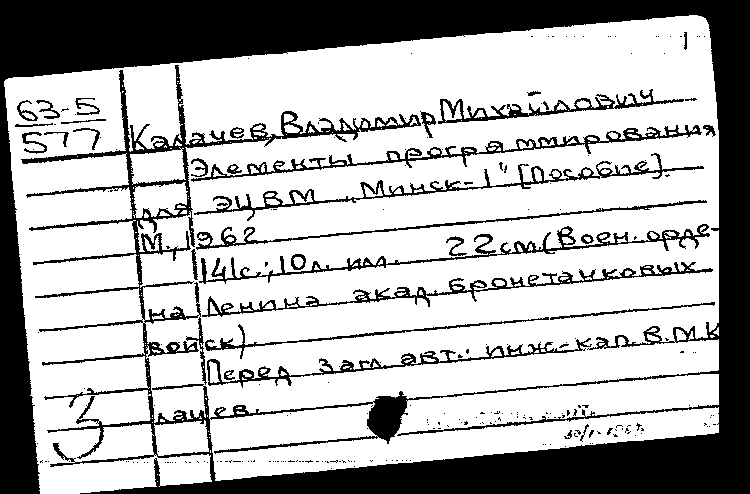 1
63-5
577
Калачев, Владимир Михайлович
Элементы программирования
для ЭЦВМ „Минск-1" [Пособие].
М., 1962
141с.; 10л. илл. 22см. (Воен. орде-
на Ленина акад. бронетанковых
войск).
Перед загл. авт.: инж.-кап. В.М.К
лачев.
3